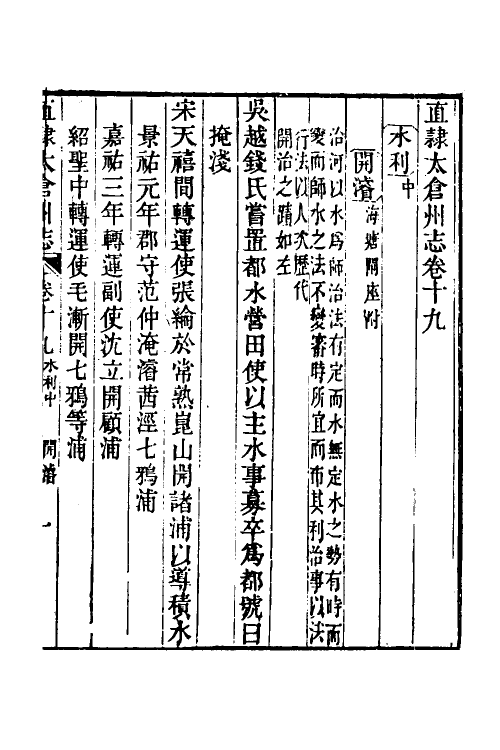 直隷太倉州志卷十九
水利中
開濬海塘閘座附
治河以水爲師治法有定而水無定水之勢有時而
變而師水之法不變審時所宜而布其利治事以法
行法以人次歷代
開治之蹟如左
吳越錢氏嘗置都水營田使以主水事募卒爲都號曰
掩淺
宋天禧間轉運使張綸於常熟崑山開諸浦以導積水
景祐元年郡守范仲淹濬茜涇七鴉浦
嘉祐三年轉運副使沈立開顧浦
紹聖中轉運使毛漸開七鴉等浦
直隷太倉州志 卷十九水利中 開濬 一